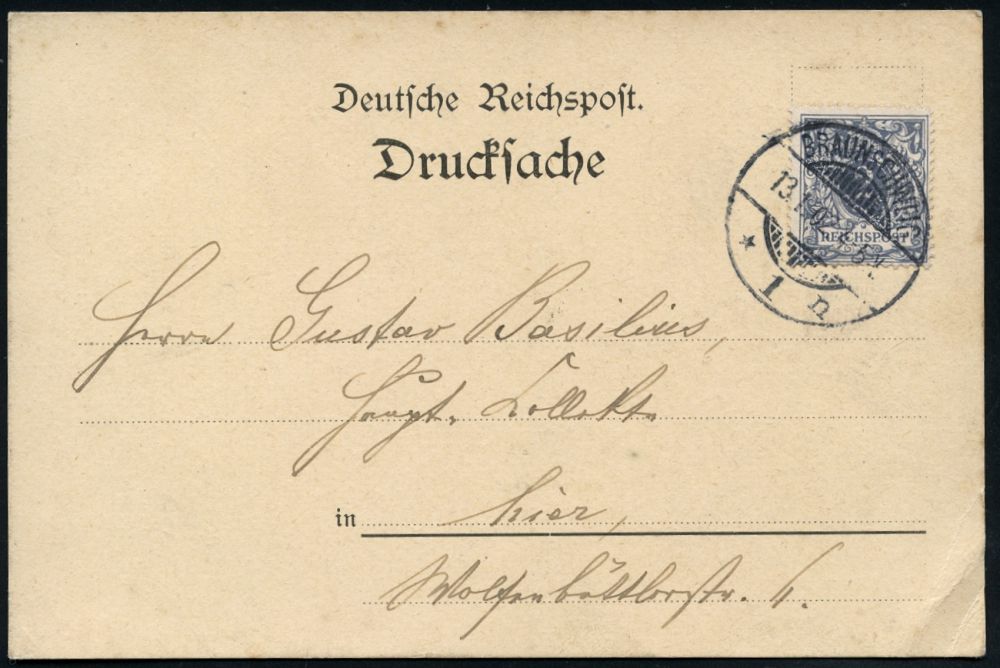 Deutsche Reichspost.
Drucksache
BRAUNSCHWEIG
REICHSPOST
* 1 n
Herrn Gustav Basilius,
Haupt. Kollekt.
in hier,
Wolfenbüttlerstr. 6.